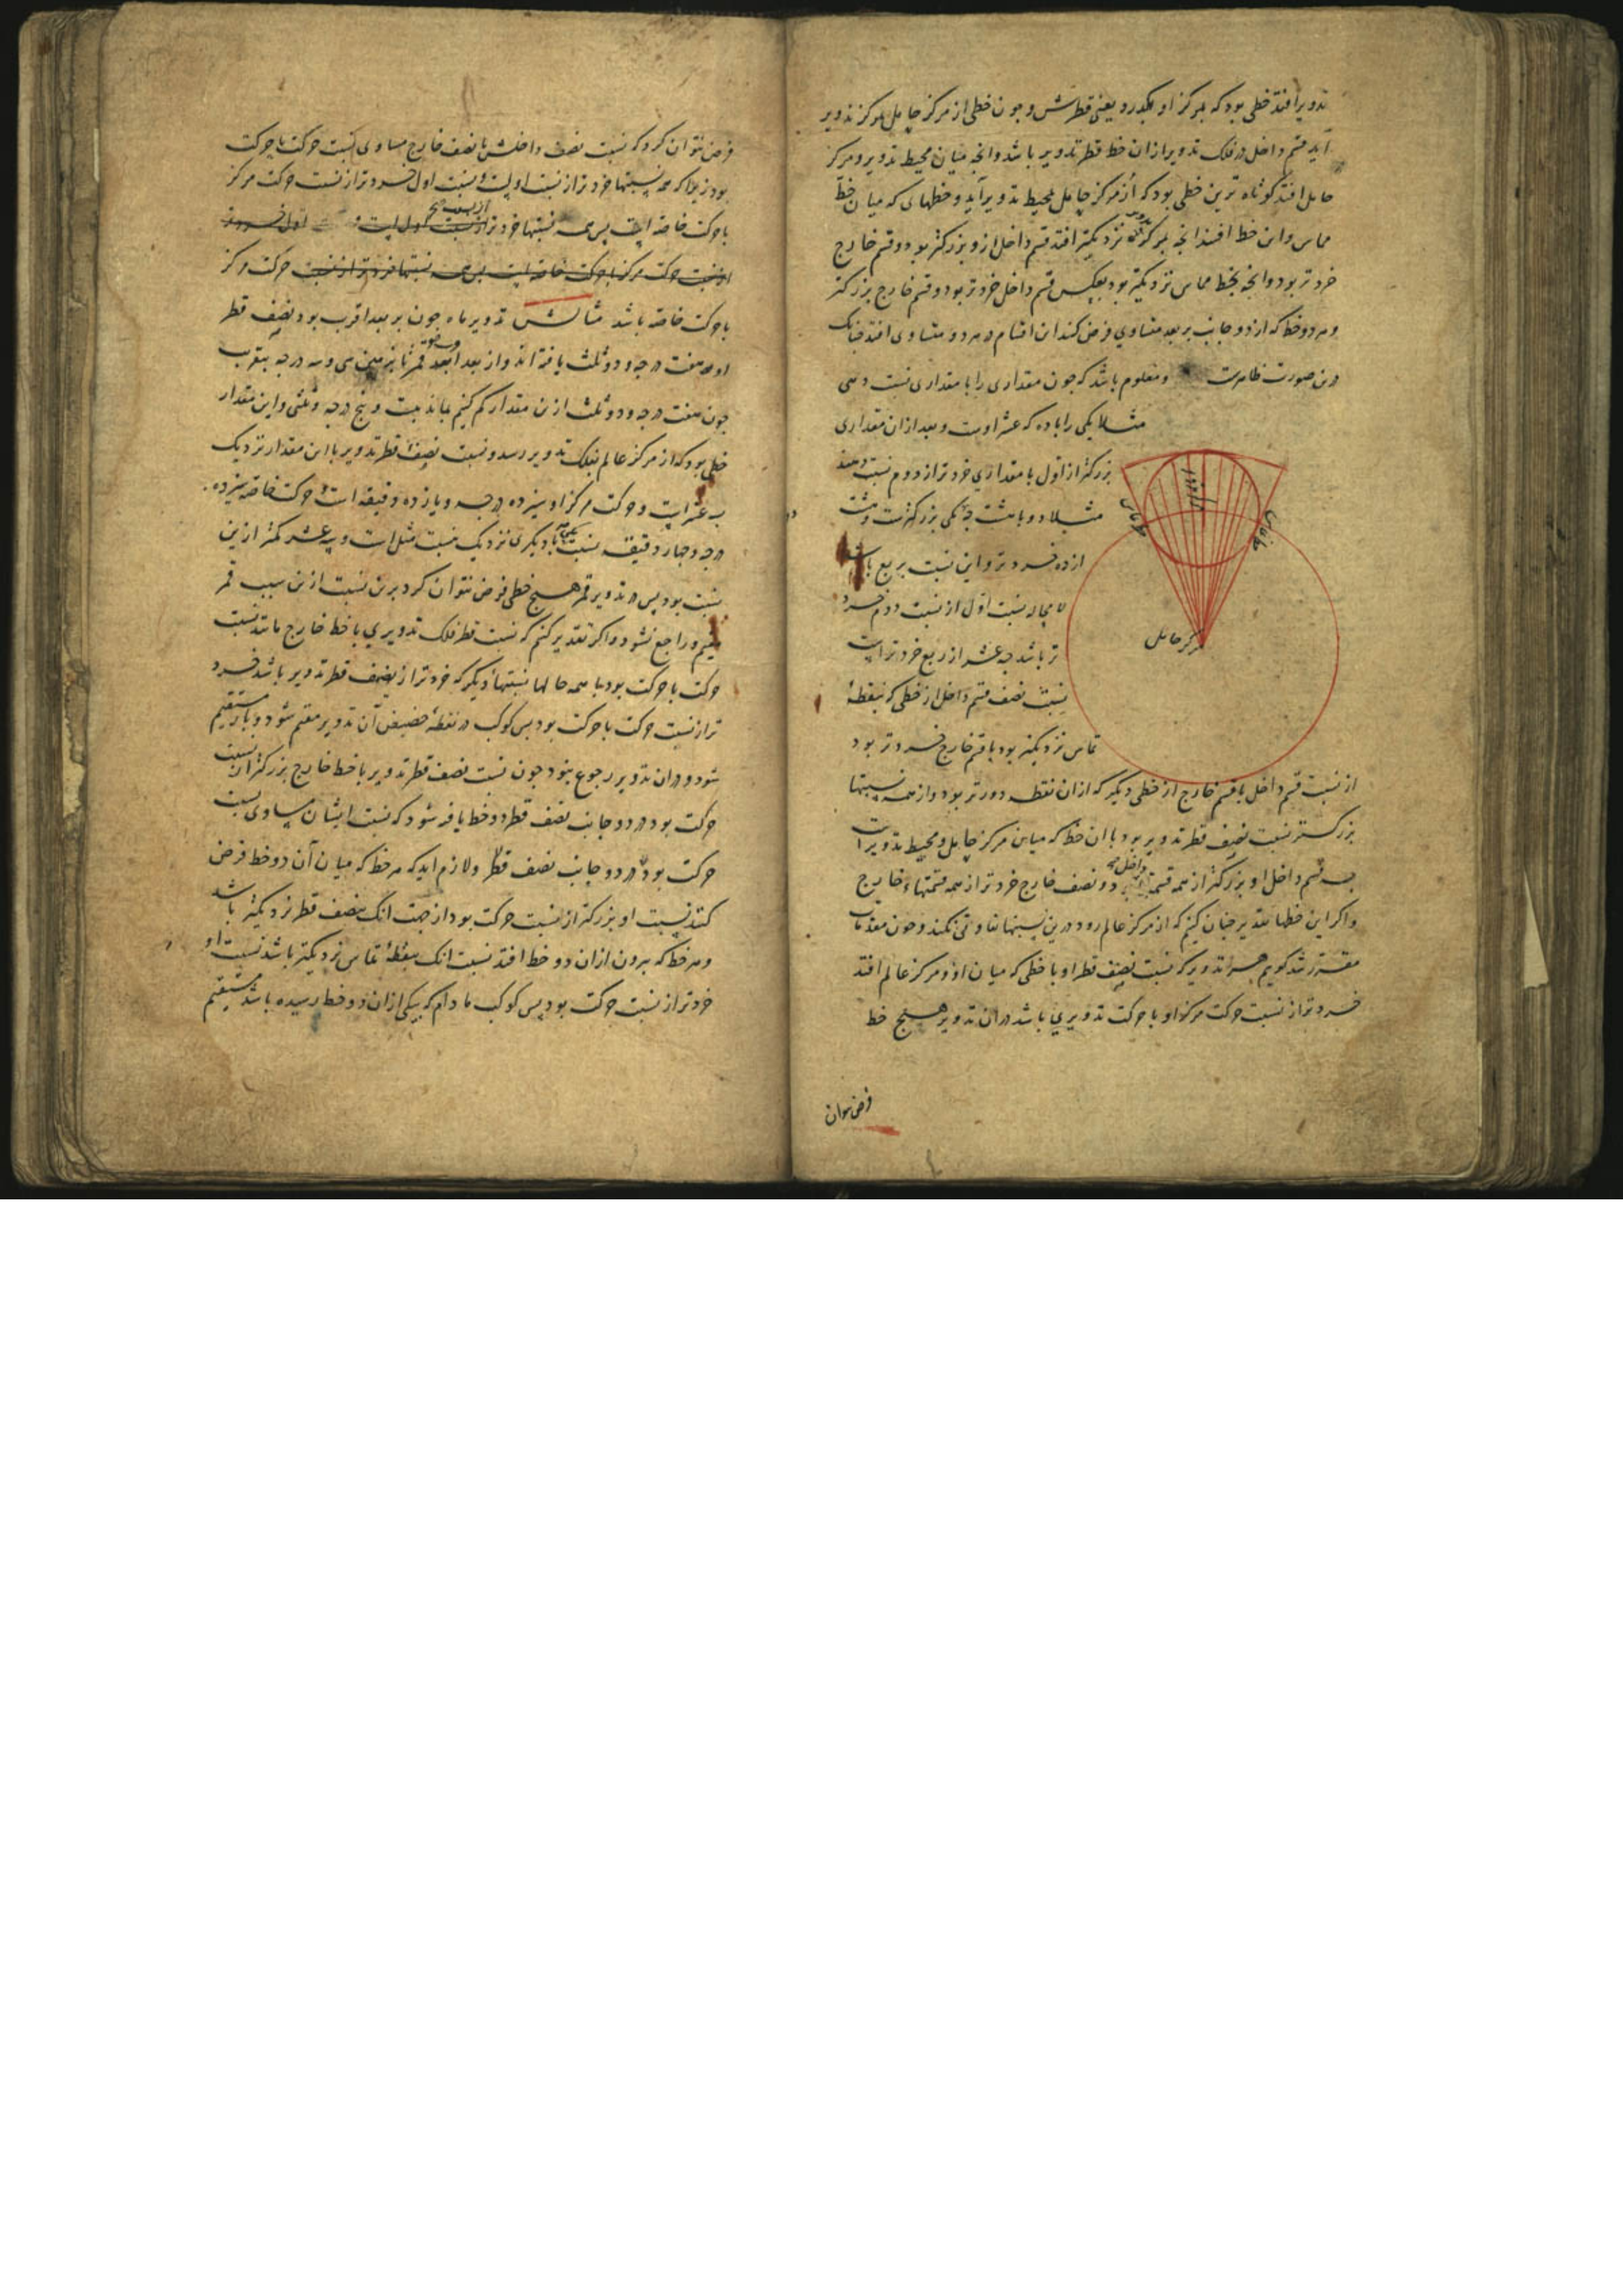 تدویر افتد خطی بود که بمرکز او بگذرد یعنی قطرش و چون خطی از مرکز حامل بمرکز تدویر
آید قسم داخل در فلک تدویر ازان خط قطر تدویر باشد وانچه میان محیط تدویر و مرکز
حامل افتد کوتاه ترین خطی بود که از مرکز حامل بمحیط تدویر آید و خطهای که میان خط
مماس واین خط افتد انچه بمرکز نزدیکتر افتد قسم داخل ازو بزرکتر بود و قسم خارج
خردتر بود وانچه بخط مماس نزدیکتر بود بعکس قسم داخل خردتر بود و قسم خارج بزرکتر
وهر دو خط که از دو جانب بر بعد متساوی فرض کنند این اقسام در هر دو متساوی افتد چنانک
درین صورت ظاهرست ومعلوم باشد که چون مقداری را با مقداری نسبت دهی
مثلا یکی را با ده که عشر اوست و بعد ازان مقداری
بزرکتر از اول با مقداری خردتر از دوم نسبت دهند
مثلا دو با هشت چه یکی بزرکترست وهشت
از ده خردتر واین نسبت بربع باشد
لا محاله نسبت اول از نسبت دوم خرد
تر باشد چه عشر از ربع خردتر است
نسبت نصف قسم داخل از خطی که بنقطهٔ
تماس نزدیکتر بود با قسم خارج خردتر بود
از نسبت قسم داخل با قسم خارج از خطی دیکر که ازان نقطه دورتر بود واز همه نسبتها
بزرکتر نسبت نصف قطر تدویر بود با ان خط که میان مرکز حامل ومحیط تدویر است
چه قسم داخل او بزرکتر از همه قسمهای داخل و نصف خارج خردتر از همه قسمتهاء خارج
واکر این خطها تقدیر چنان کنیم که از مرکز عالم رود درین نسبتها تفاوتی نکند وچون مقدمات
مقرر شد کویم هر تدویر که نسبت نصف قطر او با خطی که میان او و مرکز عالم افتد
خردتر از نسبت حرکت مرکز او با حرکت تدویری باشد دران تدویر هیچ خط
فرض نتوان
نقطه تماس
نقطه تماس
مرکز حامل
فرض نتوان کرد که نسبت نصف داخلش با نصف خارج مساوی نسبت حرکت با حرکت
بود زیرا که همه نسبتها خردتر از نسبت اولست ونسبت اول خردتر از نسبت حرکت مرکز
با حرکت خاصه است پس همه نسبتها خردتر از نسبت اول است
از نسبت حرکت مرکز با حرکت خاصه است پس همه نسبتها خردتر از نسبت حرکت مرکز
با حرکت خاصه باشد مثالش تدویر ماه چون بر بعد اقرب بود نصف قطر
او هفت درجه و دو ثلث یافته اند واز بعد ابعد قمر تا بزمین سی وسه درجه بتقریب
چون هفت درجه و دو ثلث ازین مقدار کم کنیم بماند بیست و پنج درجه وثلثی واین مقدار
خطی بود که از مرکز عالم بفلک تدویر رسد ونسبت نصف قطر تدویر با این مقدار نزدیک
سه عشر است وحرکت مرکز او سیزده درجه ویازده دقیقه است وحرکت خاصه سیزده
درجه وچهار دقیقه نسبت یکی با دیکری نزدیک نسبت مثل است وسه عشر کمتر ازین
نسبت بود پس در تدویر قمر هیچ خطی فرض نتوان کرد برین نسبت ازین سبب قمر
مقیم وراجع نشود واکر تقدیر کنیم که نسبت قطر فلک تدویری با خط خارج مانند نسبت
حرکت با حرکت بود با همه حالها نسبتهاء دیکر که خردتر از نصف قطر تدویر باشد خرد
تر از نسبت حرکت با حرکت بود پس کوکب در نقطهٔ حضیض آن تدویر مقیم شود وباز مستقیم
شود ودران تدویر رجوع نبود وچون نسبت نصف قطر تدویر با خط خارج بزرکتر از نسبت
حرکت بود در دو جانب نصف قطر دو خط یافته شود که نسبت ایشان مساوی نسبت
حرکت بود در دو جانب نصف قطر ولازم اید که هر خط که میان آن دو خط فرض
کنند نسبت او بزرکتر از نسبت حرکت بود از جهت انک بنصف قطر نزدیکتر باشد
وهر خط که بیرون ازان دو خط افتد نسبت انک بنقطهٔ تماس نزدیکتر باشد نسبت او
خردتر از نسبت حرکت بود پس کوکب مادام که بیکی ازان دو خط رسیده باشد مستقیم